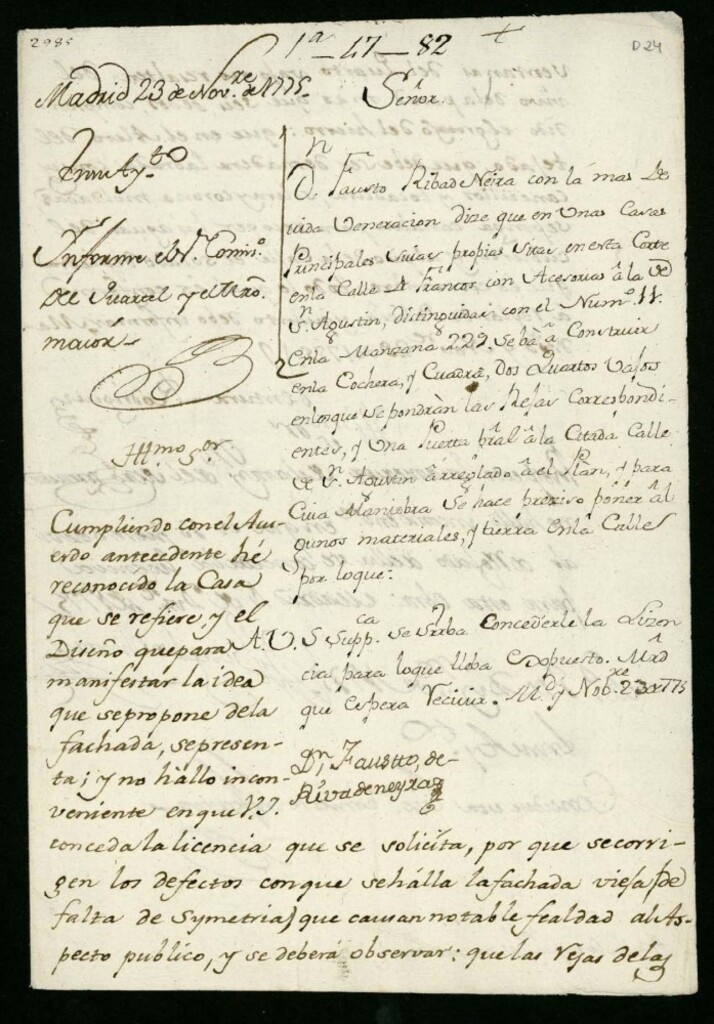 2985
1ª-47-82
D24
Madrid 23 de Novre. de 1775.
En su Aytto
Informe el Sr. Comiso.
de Quartel y el Mro.
maior.
Señor.
Dn. Fausto RibadeNeira con la mas De
vida Veneracion dize que en Unas Casas
Principales suias propias sitas en esta Corte
en la Calle de Francos con Acesorias â la de
Sn. Agustin, distinguidas con el Numo. 11.
en la Manzana 229. Se bâ â Construir
en la Cochera, y Cuadra, Dos Quartos Vajos
en los que se pondràn las Rejas Correspondi-
entes, y Una Puerta pral â la Citada Calle
de Sn. Agustin ârreglado â el Plan, y para
Cuia Maniobra se hace preziso poner al
gunos materiales, y tierra en la Calle
por loque:
A. V. S. Suppca. se sirba Concederle la Lizen
cia para loque lleba Expuesto. Mrd
que Espera Recivir. Md. y Nobre. 23 de 1775
Dn. Faustto, de
Rivadeneyra
Illmo. Sor.
Cumpliendo con el Acu-
erdo antecedente hé
reconocido la Casa
que se refiere, y el
Diseño que para
manifestar la idea
que se propone dela
fachada, se presen-
ta; y no hállo incon-
veniente en que V.I.
conceda la licencia que se solicíta, por que se corri-
gen los defectos con que se hálla la fachada vieja (de
falta de Symetria) que causan notable fealdad al As-
pecto publico, y se deberá observar: que las rejas de las